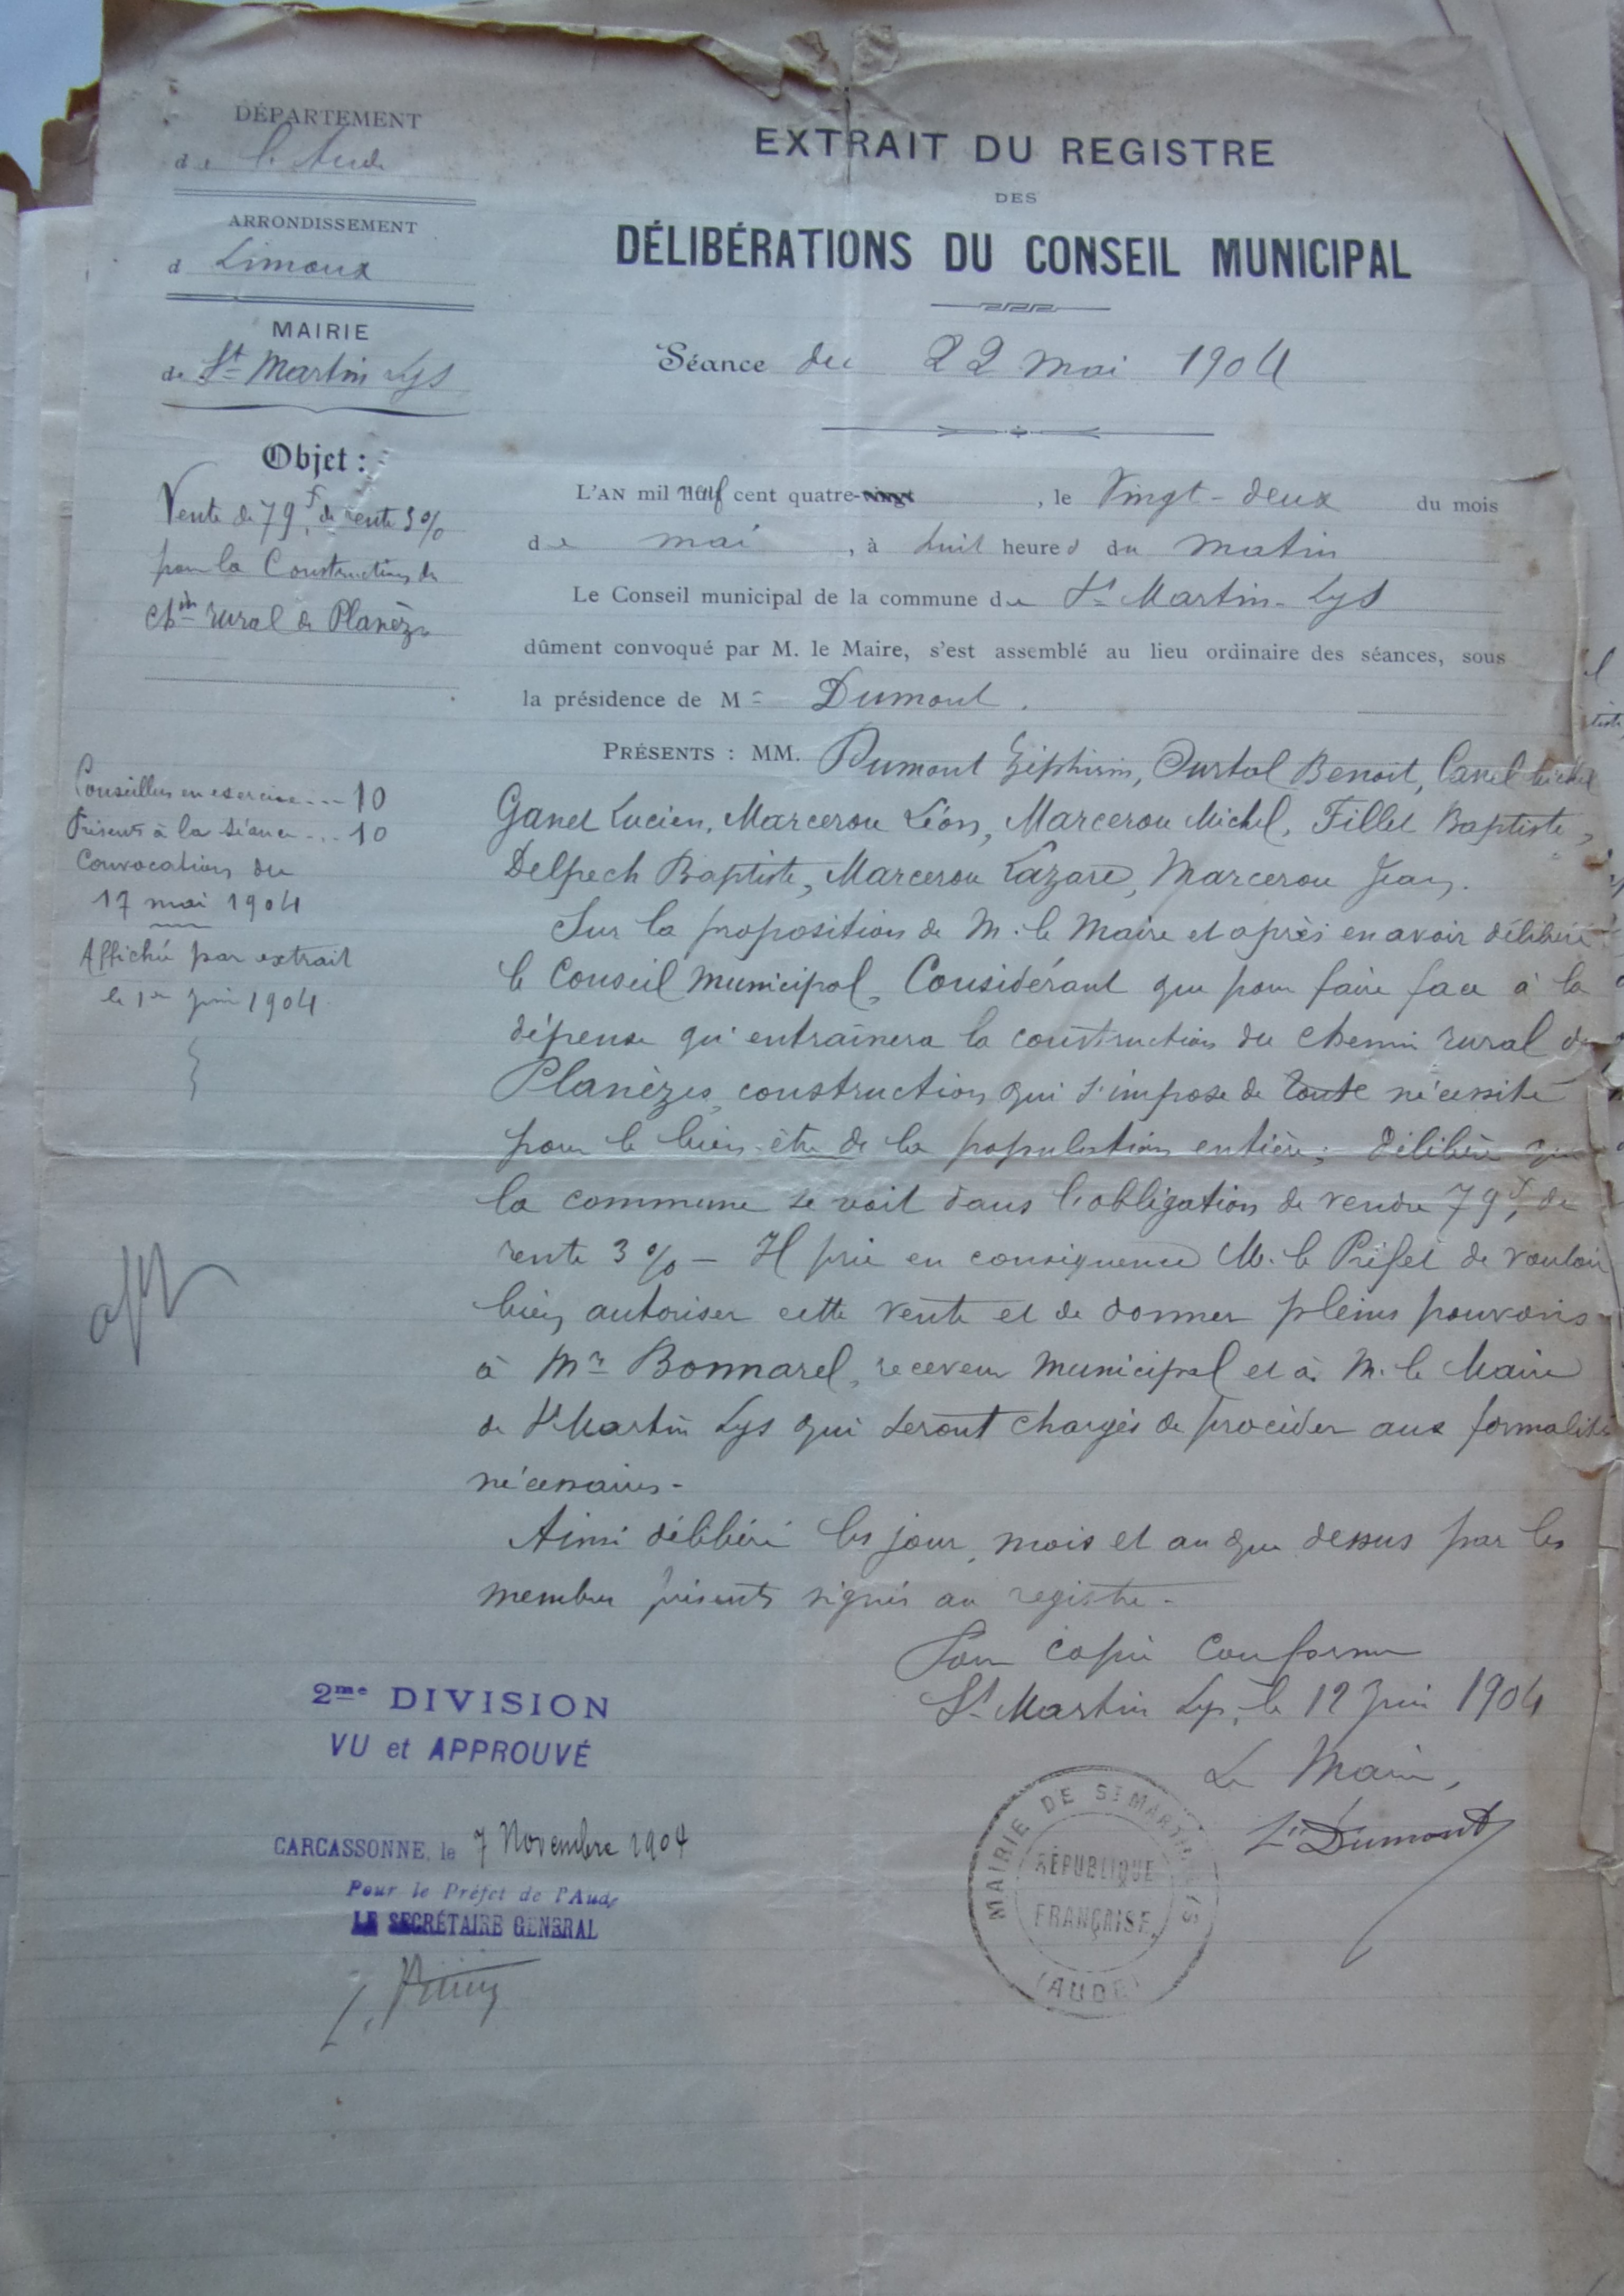 DÉPARTEMENT
de l'Aude
ARRONDISSEMENT
d Limoux
MAIRIE
de St Martin Lys
Objet :
Vente de 79f, de rente 3%
pour la Construction du
chin rural de Planèzes
Conseillers en exercice --- 10
Présents à la séance --- 10
Convocation du
17 mai 1904
Affiché par extrait
le 1er juin 1904
EXTRAIT DU REGISTRE
DES
DÉLIBÉRATIONS DU CONSEIL MUNICIPAL
Séance du 22 mai 1904
L'AN mil neuf cent quatre-vingt , le Vingt-deux du mois
de mai , à huit heures du matin
Le Conseil municipal de la commune de St Martin-Lys
dûment convoqué par M. le Maire, s'est assemblé au lieu ordinaire des séances, sous
la présidence de M= Dumont.
PRÉSENTS : MM. Dumont Zéphirin, Benoit, Canel Michel
Ganet Lucien, Marcerou Léon, Marcerou Michel, Fillet Baptiste,
Delpech Baptiste, Marcerou Lazare, Marcerou Jean.
Sur la proposition de M. le Maire et après en avoir délibéré
le Conseil municipal, Considérant que pour faire face à la
dépense qu'entraînera la construction du chemin rural de
Planèzes, construction qui s'impose de toute nécessité
pour le bien-être de la population entière; délibère que
la commune se voit dans l'obligation de vendre 79f, de
rente 3% - Il prie en conséquence M. le Préfet de vouloir
bien autoriser cette vente et de donner pleins pouvoirs
à Mr Bonnarel, receveur municipal et à M. le Maire
de St Martin Lys qui seront chargés de procéder aux formalités
nécessaires-
Ainsi délibéré les jour, mois et an que dessus par les
membres présents signés au registre-
Pour copie conforme
St Martin Lys, le 12 juin 1904
Le Maire,
Zin Dumont
MAIRIE DE ST MARTIN LYS
RÉPUBLIQUE
FRANÇAISE
(AUDE)
2me DIVISION
VU et APPROUVÉ
CARCASSONNE, le 7 Novembre 1904
Pour le Préfet de l'Aude
LE SECRÉTAIRE GÉNÉRAL